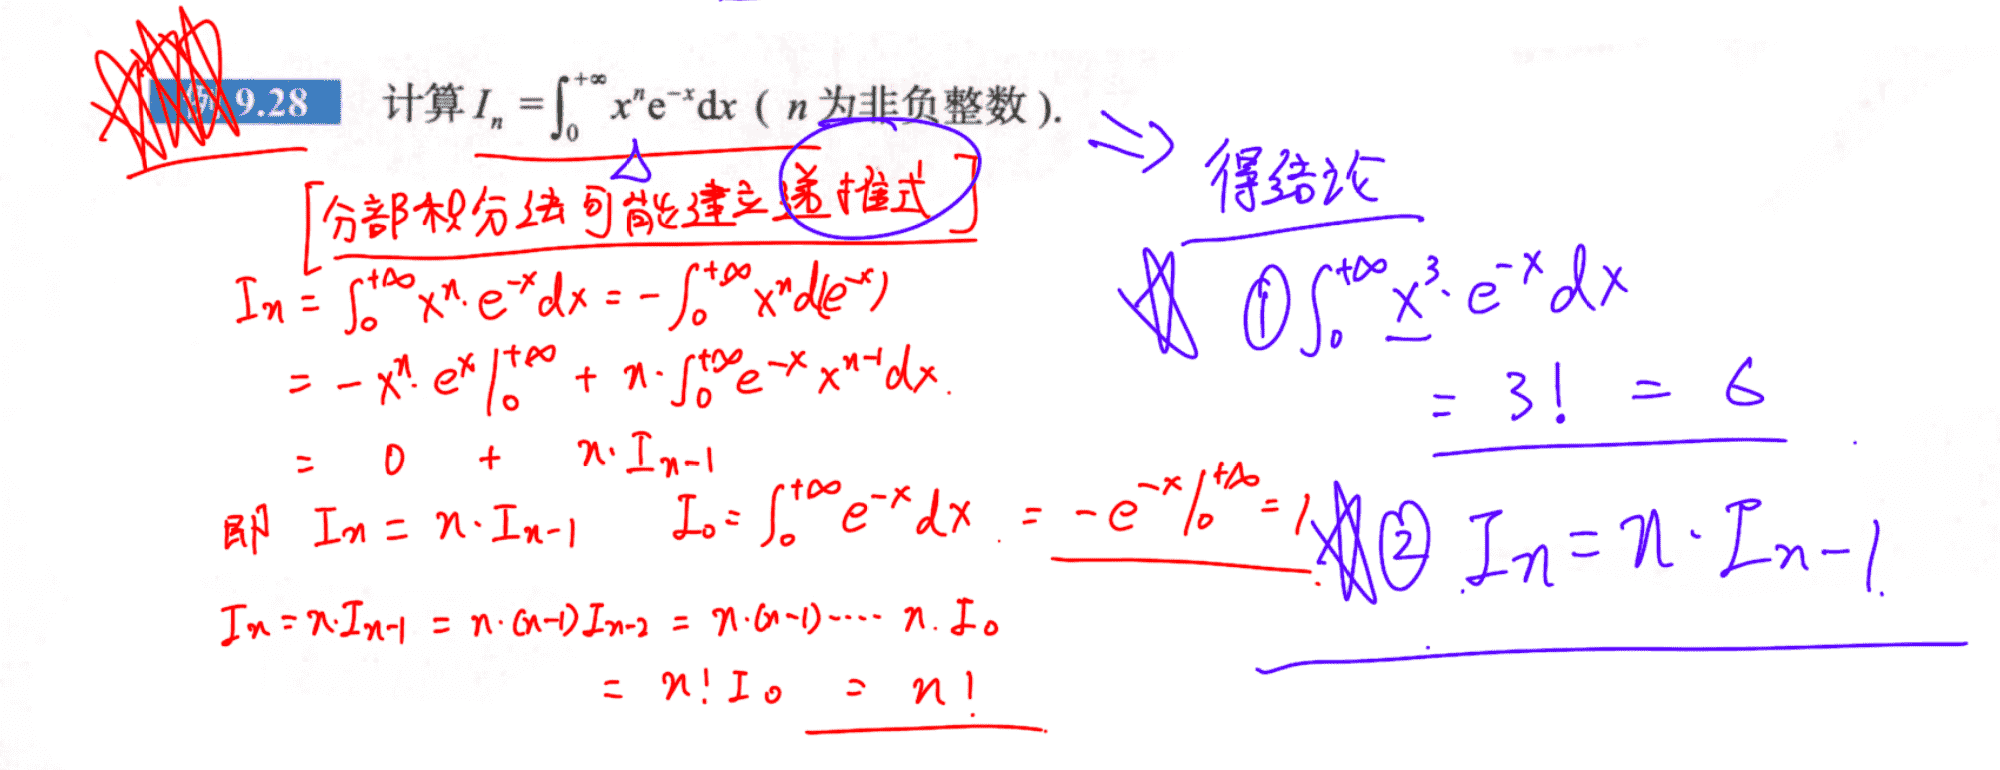 例 9.28 计算 Iₙ = ∫₀^{+∞} xⁿe⁻ˣdx ( n 为非负整数 ).
[分部积分法可能建立递推式]
Iₙ = ∫₀^{+∞} xⁿ·e⁻ˣdx = -∫₀^{+∞} xⁿd(e⁻ˣ)
= -xⁿ·eˣ|₀^{+∞} + n·∫₀^{+∞} e⁻ˣ xⁿ⁻¹dx.
= 0 + n·Iₙ₋₁
即 Iₙ = n·Iₙ₋₁ I₀ = ∫₀^{+∞} e⁻ˣdx. = -e⁻ˣ|₀^{+∞} = 1
Iₙ = n·Iₙ₋₁ = n·(n-1)Iₙ₋₂ = n·(n-1)····n.I₀
= n! I₀ = n!
⇒ 得结论
① ∫₀^{+∞} x³·e⁻ˣdx
= 3! = 6
② Iₙ = n·Iₙ₋₁